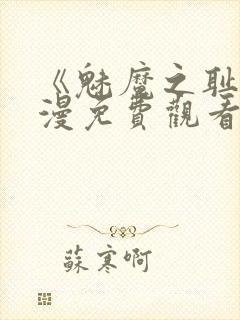 《魅魔之耻
漫免費觀看
蘇寒啊